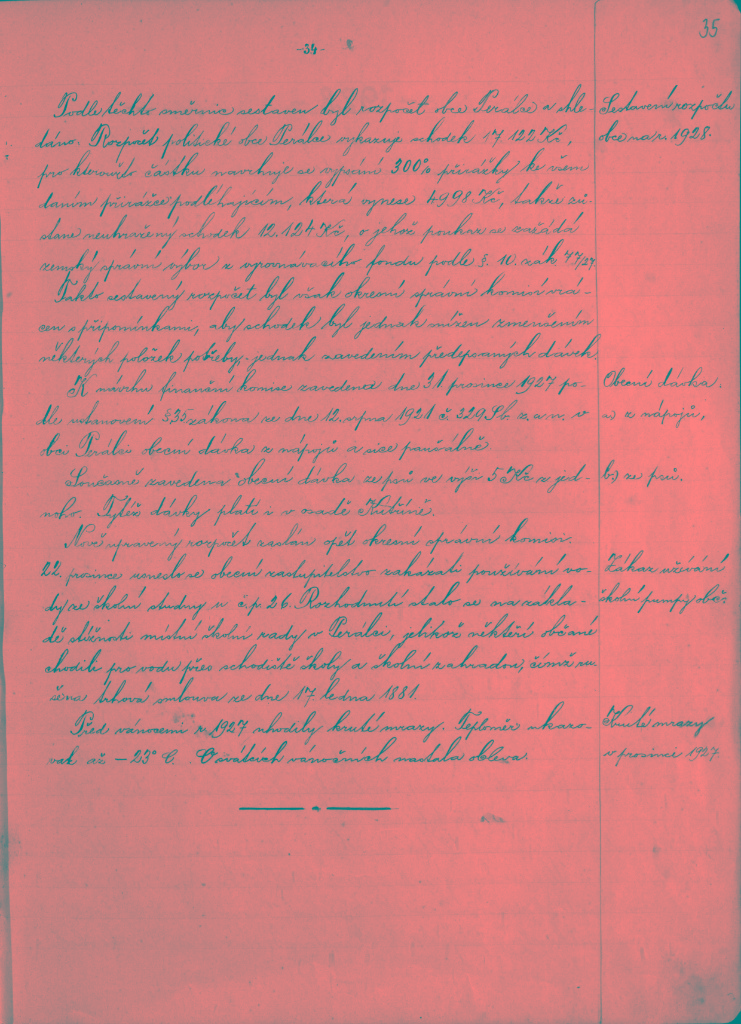 35
-34-
Podle těchto směrnic sestaven byl rozpočet obce Perálec a shle-
dáno: Rozpočet politické obce Perálec vykazuje schodek 17.122 Kč,
pro kteroužto částku navrhuje se vypsání 300% přirážky ke všem
daním přirážce podléhajícím, která vynese 4998 Kč, takže zů-
stane neuhražený schodek 12.124 Kč, o jehož poukaz se zažádá
zemský správní výbor z vyrovnávacího fondu podle §. 10. zák 77/27
Takto sestavený rozpočet byl však okresní správní komisí vrá-
cen s připomínkami, aby schodek byl jednak snížen zmenšením
některých položek potřeby, jednak zavedením předepsaných dávek.
K návrhu finanční komise zavedena dne 31 prosince 1927 po-
dle ustanovení § 35 zákona ze dne 12. srpna 1921 č. 329 Sb. z. a n. v
obci Perálci obecní dávka z nápojů a sice paušálně.
Současně zavedena obecní dávka ze psů ve výši 5 Kč z jed-
noho. Tytéž dávky platí i v osadě Kutříně.
Nově upravený rozpočet zaslán opět okresní správní komisi.
22. prosince usneslo se obecní zastupitelstvo zakázati používání vo-
dy ze školní studny u č.p. 26. Rozhodnutí stalo se na zákla-
dě stížnosti místní školní rady v Perálci, jelikož někteří občané
chodili pro vodu přes schodiště školy a školní zahradou, čímž ru-
šena trhová smlouva ze dne 17. ledna 1881.
Před vánocemi r. 1927 uhodily kruté mrazy. Teploměr ukazo-
val až – 23° C. O svátcích vánočních nastala obleva.
Sestavení rozpočtu
obce na r. 1928.
Obecní dávka.
a) z nápojů,
b.) ze psů.
Zákaz užívání
školní pumpy obč.
Kruté mrazy
v prosinci 1927.